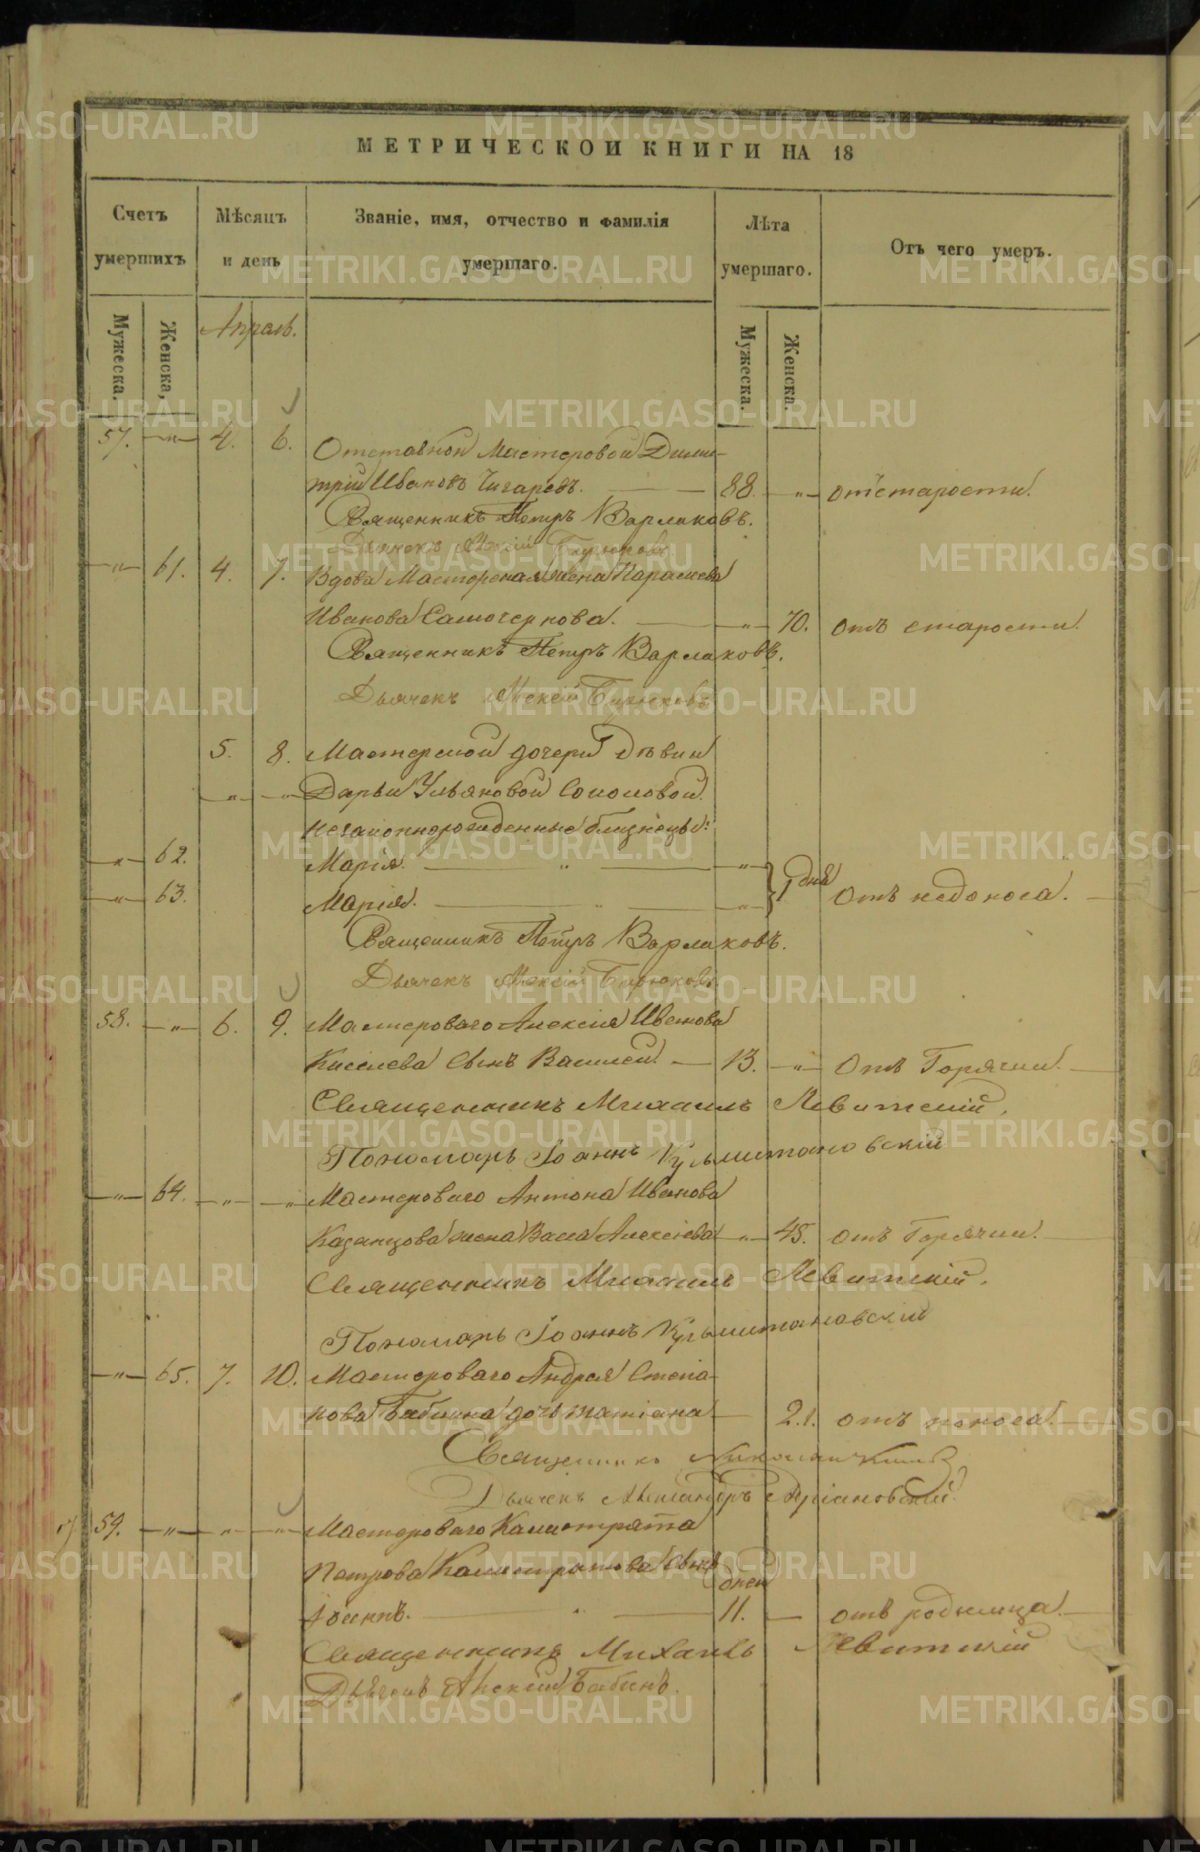 МЕТРИЧЕСКОЙ КНИГИ НА 18
Счетъ умершихъ
Мѣсяцъ и день
Званіе, имя, отчество и фамилія умершаго.
Лѣта умершаго.
Отъ чего умеръ.
Мужеска.
Женска,
Апрѣль.
Мужеска.
Женска.
57. — „ — 4. 6. Отставной Мастеровой Дими-
трій Ивановъ Чигаревъ. — 88. — „ — отъ старости.
Священникъ Петръ Варлаковъ.
Дьячекъ Алексій Бирюковъ
— „ — 61. 4. 7. Вдова Мастерская жена
Иванова Самочернова. — „ — 70. отъ старости.
Священникъ Петръ Варлаковъ.
Дьячекъ Алексій Бирюковъ
5. 8. Мастерской дочери дѣвки
— „ — — Дарьи Ульяновой
незаконнорожденные близнецы:
— „ — 62. Марія. — „ — — „ —
— „ — 63. Марія. — „ — — „ — 1 дня отъ недоноса. —
Священникъ Петръ Варлаковъ.
Дьячекъ Алексій Бирюковъ
58. — „ — 6. 9. Мастероваго Алексія
Киселева сынъ Василій. — 13. — „ — отъ Горячки. —
Священникъ Михаилъ Левитскій.
Пономарь Іоаннъ
— „ — 64. — „ — — „ — Мастероваго Антона Иванова
Казанцова жена Васса Алексіева — „ — 45. отъ Горячки.
Священникъ Михаилъ Левитскій.
Пономарь Іоаннъ
— „ — 65. 7. 10. Мастероваго Андрея Степа-
нова Бабкина дочь Татіана — 2.1. отъ поноса. —
Священникъ Николай
Дьячекъ Александръ Адріановскій
59. — „ — — „ — — „ — Мастероваго Калистрата
Петрова Калистратова сынъ дней
Іоаннъ. — „ — 11. — отъ родимца. —
Священникъ Михаилъ Левитскій
Дьячекъ Алексій Бабинъ.
METRIKI.GASO-URAL.RU